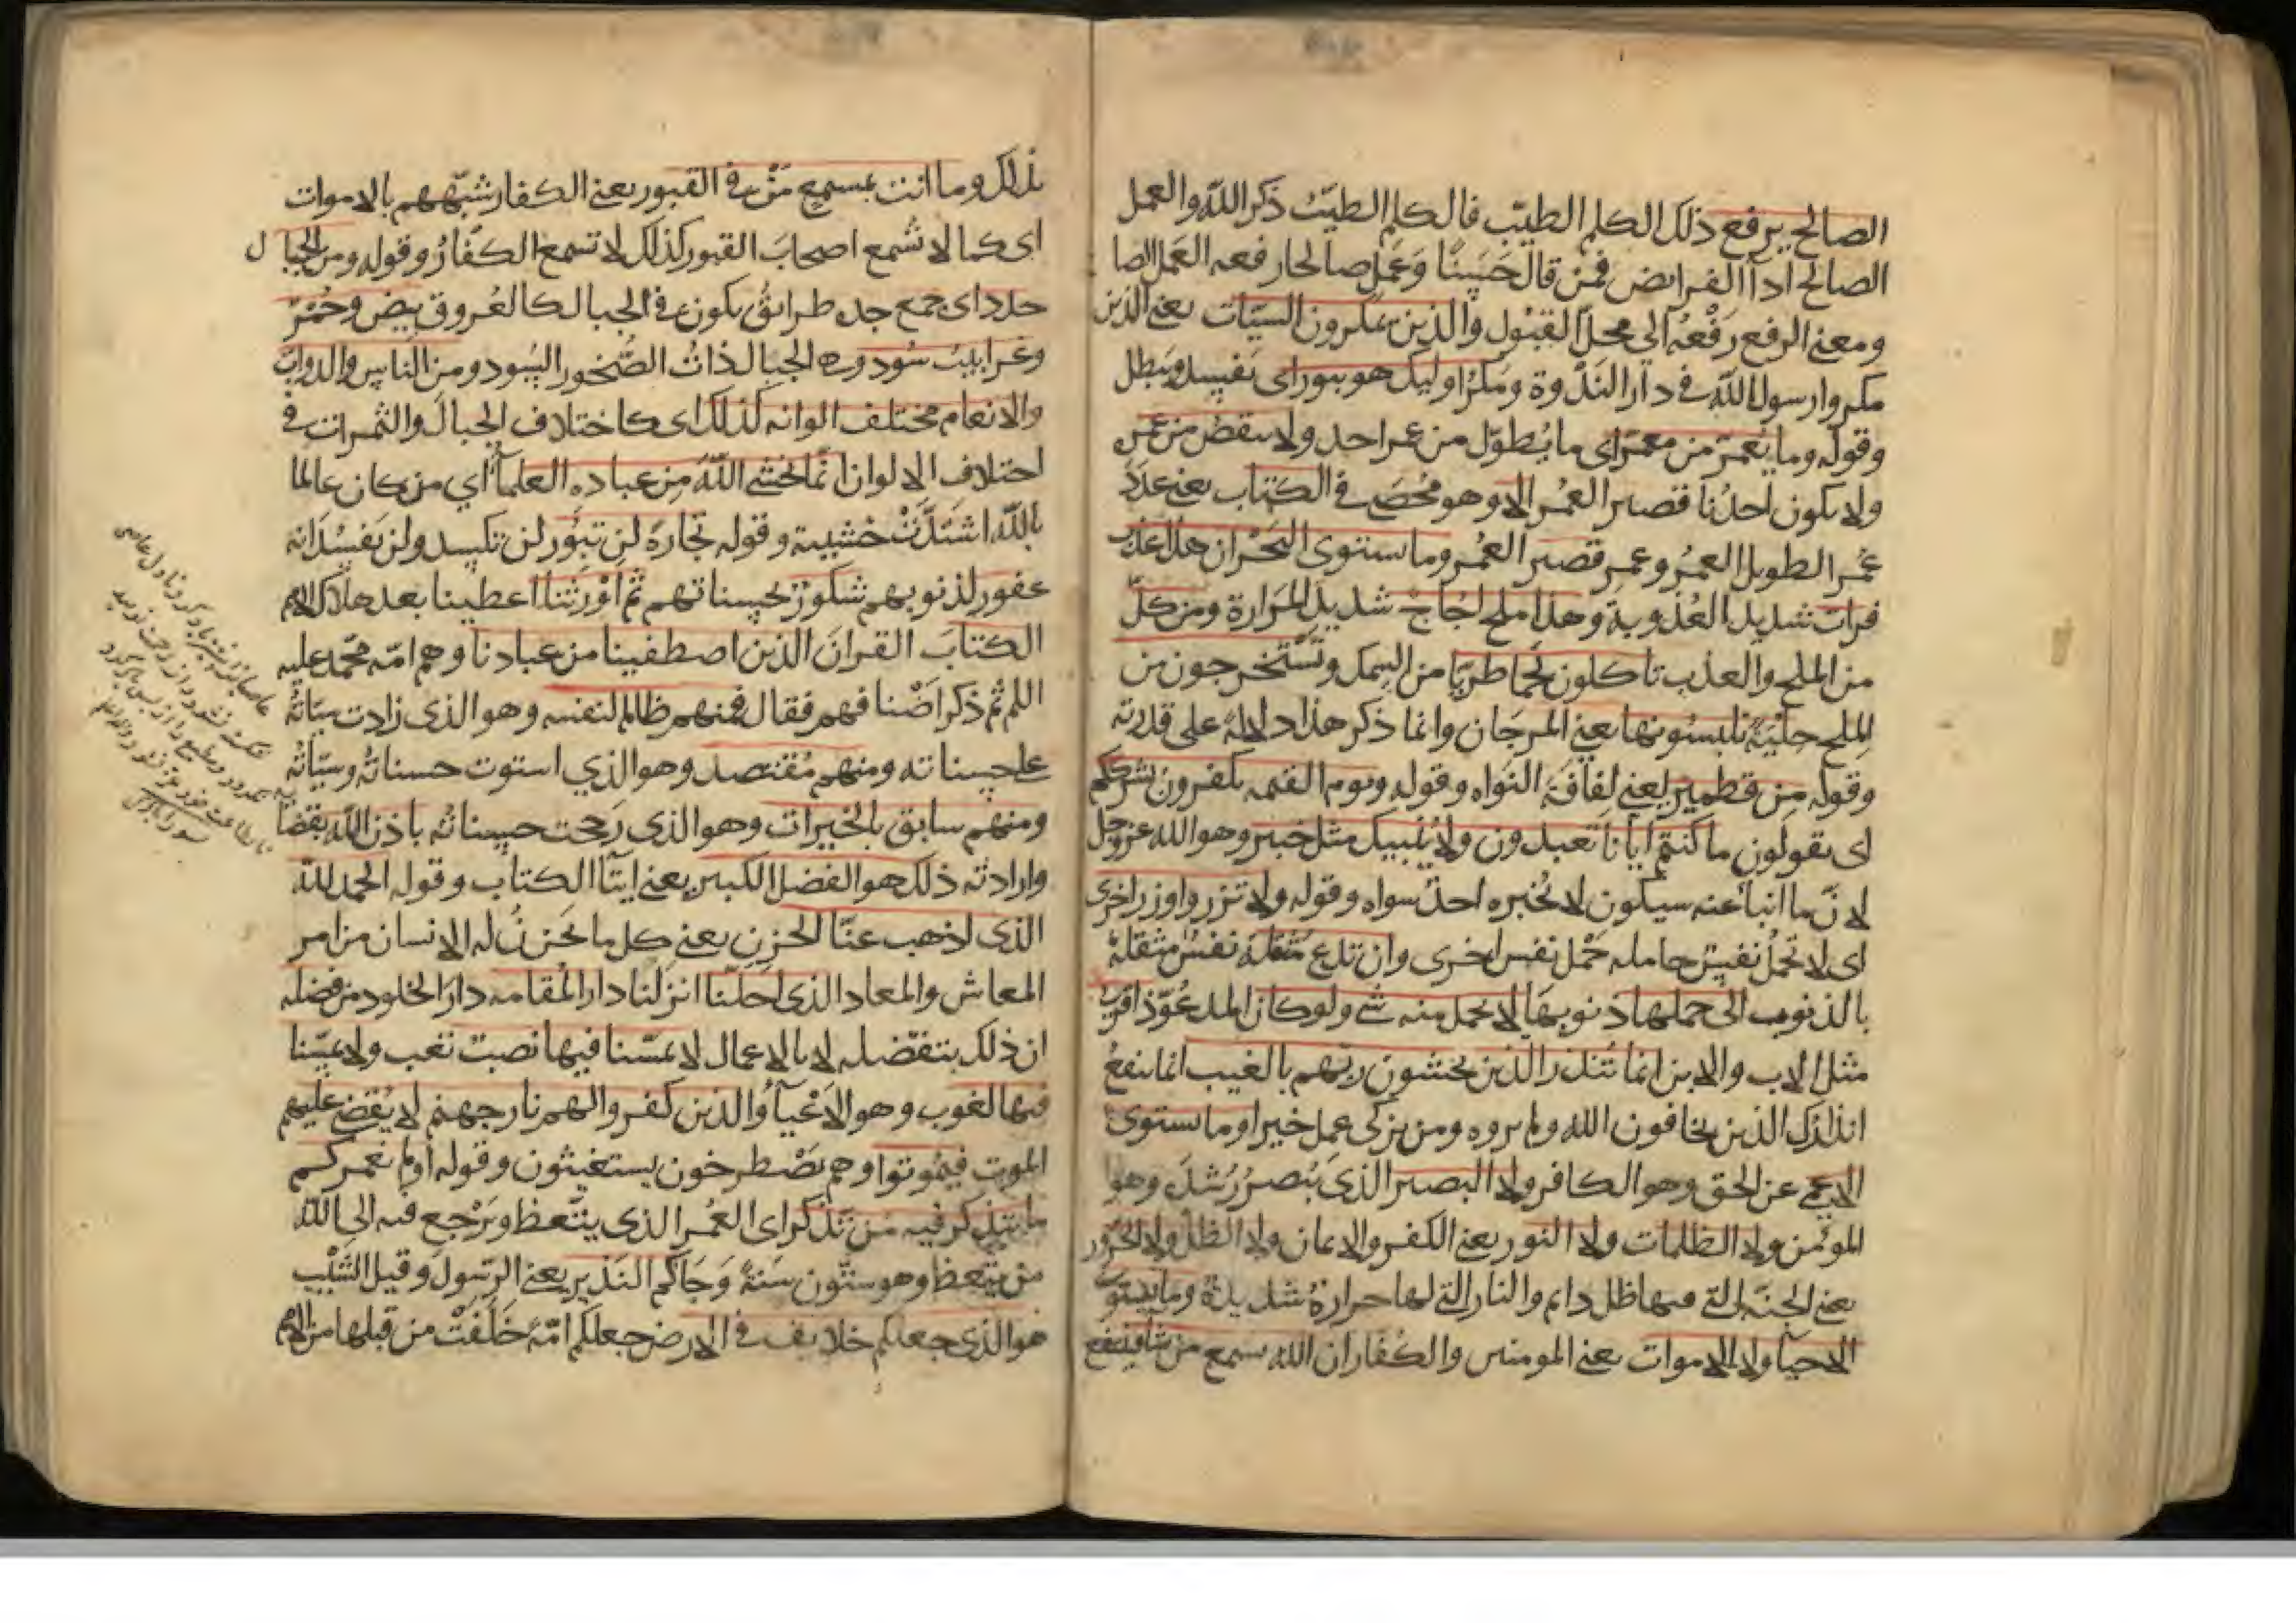 الصالح يرفع ذلك الكلم الطيّب فالكلم الطيّبُ ذكر الله والعمل
الصالح اداآ الفرايض فمَنْ قال حَسَنًا وَعَمِلَ صالحا رفعه العَمَل الصا
ومعنى الرفع رَفْعُهُ الى محلّ القَبُول والذين يمكرون السيّات يعني الذين
مكروا رسول الله في دار النَدْوة ومَكْرُ اوليك هو يبور اى يَفْسِدُ ويَبْطل
وقوله وما يُعَمّرُ من مُعَمّر اى ما يُطوّل من عمر احد ولا ينقصُ من عمره
ولا يكون احدُنا قصير العُمُر الا وهو مُحصَى في الكتاب يعنى عدَدَ
عُمر الطويل العمرُ وعمر قصير العُمر وما يستوى البَحْران هذا عَذْب
فرات شديد العُذوبة وهذا ملح اُجاجٌ شديد المَرارة ومن كلّ
من الملح والعذب تاكلون لَحْمًا طريّا من السمك وتَسْتَخرجون من
الملح حِلْيَةً تلبسُونها يعنى المرجَان وانما ذكر هذا دلالةً على قدرته
وقوله مِن قطمير يعنى لفافَةَ النَواه وقوله ويوم القيمه يكفرون بشرككم
اى يقولون ما كنتم ايّانا تعبدون ولا يُنَبِيكَ مثل خبير وهو الله عزوجل
لانّ ما انبأ عنه سيكون لا يُخبره احدٌ سواه وقوله ولا تزر وازر اخرى
اى لا تحملُ نفسٌ حامله حِمْل نفس اخرى وان تدع مُثْقَلَة نفسٌ مثقلةٌ
بالذنوب الى حملها ذنوبها لا يحمل منه شى ولو كان المدعُوّ ذا قربى
مثل الاب والابن انما تُنذر الذين يخشون ربّهم بالغيب انما ينفعُ
انذارُك الذين يخافون الله ولم يروه ومن تزكّى عمل خيرا وما يستوى
الاعمى عن الحق وهو الكافر ولا البصير الذى يُبصرُ رُشدَه وهوا
المؤمن ولا الظلمات ولا النور يعنى الكفر والايمان ولا الظلّ ولا الحَرُور
يعنى الجنّه التى فيها ظل دايم والنار التى لها حرارةٌ شديدة وما يستوى
الاحيآ ولا الاموات يعنى المومنين والكفار ان الله يسمع من يشا فينتفع
بذلك وما انت بمسمع مَنْ في القبور يعنى الكفار شبّههم بالاموات
اى كما لا تُسْمع اصحابَ القبور كذلك لا تسمع الكفّارُ وقوله ومن الجبال
جدد اى جمع جده طرايقُ يكون في الجبال كالعُروق بيض وحُمْرٌ
وغرابيبُ سُود وهى الجبال ذاتُ الصُّخور السُود ومن النّاس والدوابّ
والانعام مختلف الوانه كذلك اى كاختلاف الجبال والثمرات في
اختلاف الالوان انّما يخشى اللّهَ مِن عباده العلمآأ اي من كان عالما
بالله اشتَدّتْ خشيته وقوله تجارةً لن تبُور لن تكسد ولن تفسُدَ انه
غفور لذنوبهم شكورٌ لحسناتهم ثم اوْرثنا اعطينا بعد هلاك الامم
الكتابَ القرآنَ الذين اصطفينا من عبادنا وهم امّه محمّد عليه
اللم ثم ذكر اَصْنافهم فقال فمنهم ظالم لنفسه وهو الذى زادت سيّاتُهُ
على حسناته ومنهم مُقتصد وهو الذي استوت حسناتُهُ وسيّاتُه
ومنهم سابق بالخيرات وهو الذى رَجحت حسناتُه باذن الله بقضا
وارادته ذلك هو الفضل الكبير يعنى ايتآ الكتاب وقوله الحمد لله
الذى اذهب عنّا الحزن يعنى كل ما يَحْزنُ له الانسان من امر
المعاش والمعاد الذى احلّنا انزلنا دار المُقامه دار الخلود من فضله
ان ذلك بتفضّله لا بالاعمال لا يمسّنا فيها نصبٌ تعب ولا يمسّنا
فيها لغوب وهو الاعْيآأُ والذين كفروا لهم نار جهنم لا يُقضى عليهم
الموت فيمُوتوا وهم يَصْطرخون يستغيثون وقوله اولم نعمركم
ما يتذكر فيه مَن تذكر اى العُمر الذى يتّعظ ويَرْجع فيه الى الله
من يتّعظ وهو ستّون سَنةً وَجَاكم النذير يعنى الرسُولَ وقيل الشَيْب
هو الذى جعلكم خلايف في الارض جعلكم امّةً خَلَفَتْ من قبلها من الامم